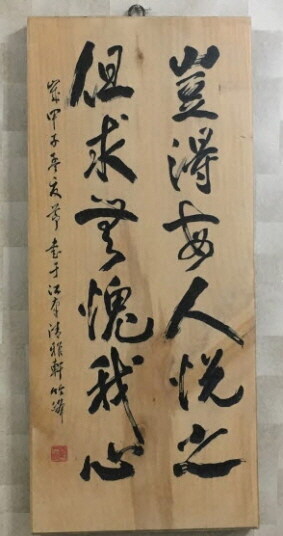 豈得每人悅之
但求無愧我心
歲甲子年夏
書于江
清雅軒